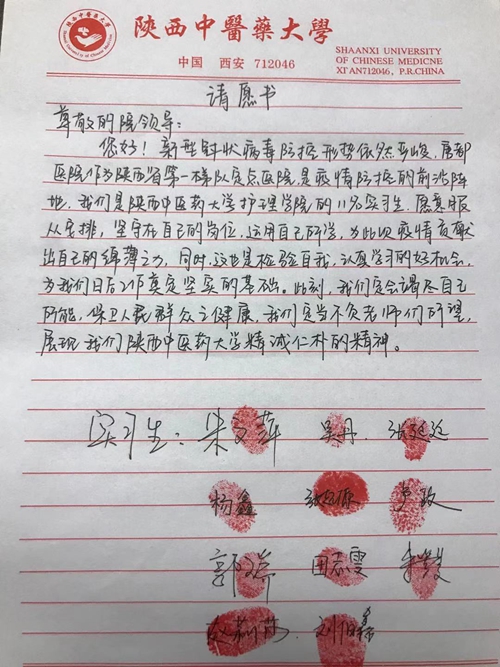 陕西中醫藥大學
中国 西安 712046
SHAANXI UNIVERSITY
OF CHINESE MEDICNE
XI'AN712046, P.R.CHINA
请愿书
尊敬的院领导：
您好！新型冠状病毒防控形势依然严峻，唐都
医院作为陕西省第一梯队定点医院是疫情防控的前沿阵
地。我们是陕西中医药大学护理学院的11名实习生，愿意服
从安排，坚守在自己的岗位，运用自己所学，为此次疫情贡献
出自己的绵薄之力，同时，这也是检验自我，认真学习的好机会，
为我们日后工作奠定坚实的基础。此刻，我们定会竭尽自己
所能，保卫人民群众之健康，我们定当不负老师们所望，
展现我们陕西中医药大学精诚仁朴的精神。
实习生：朱文萍 吴丹. 张延廷
杨鑫
田志雯